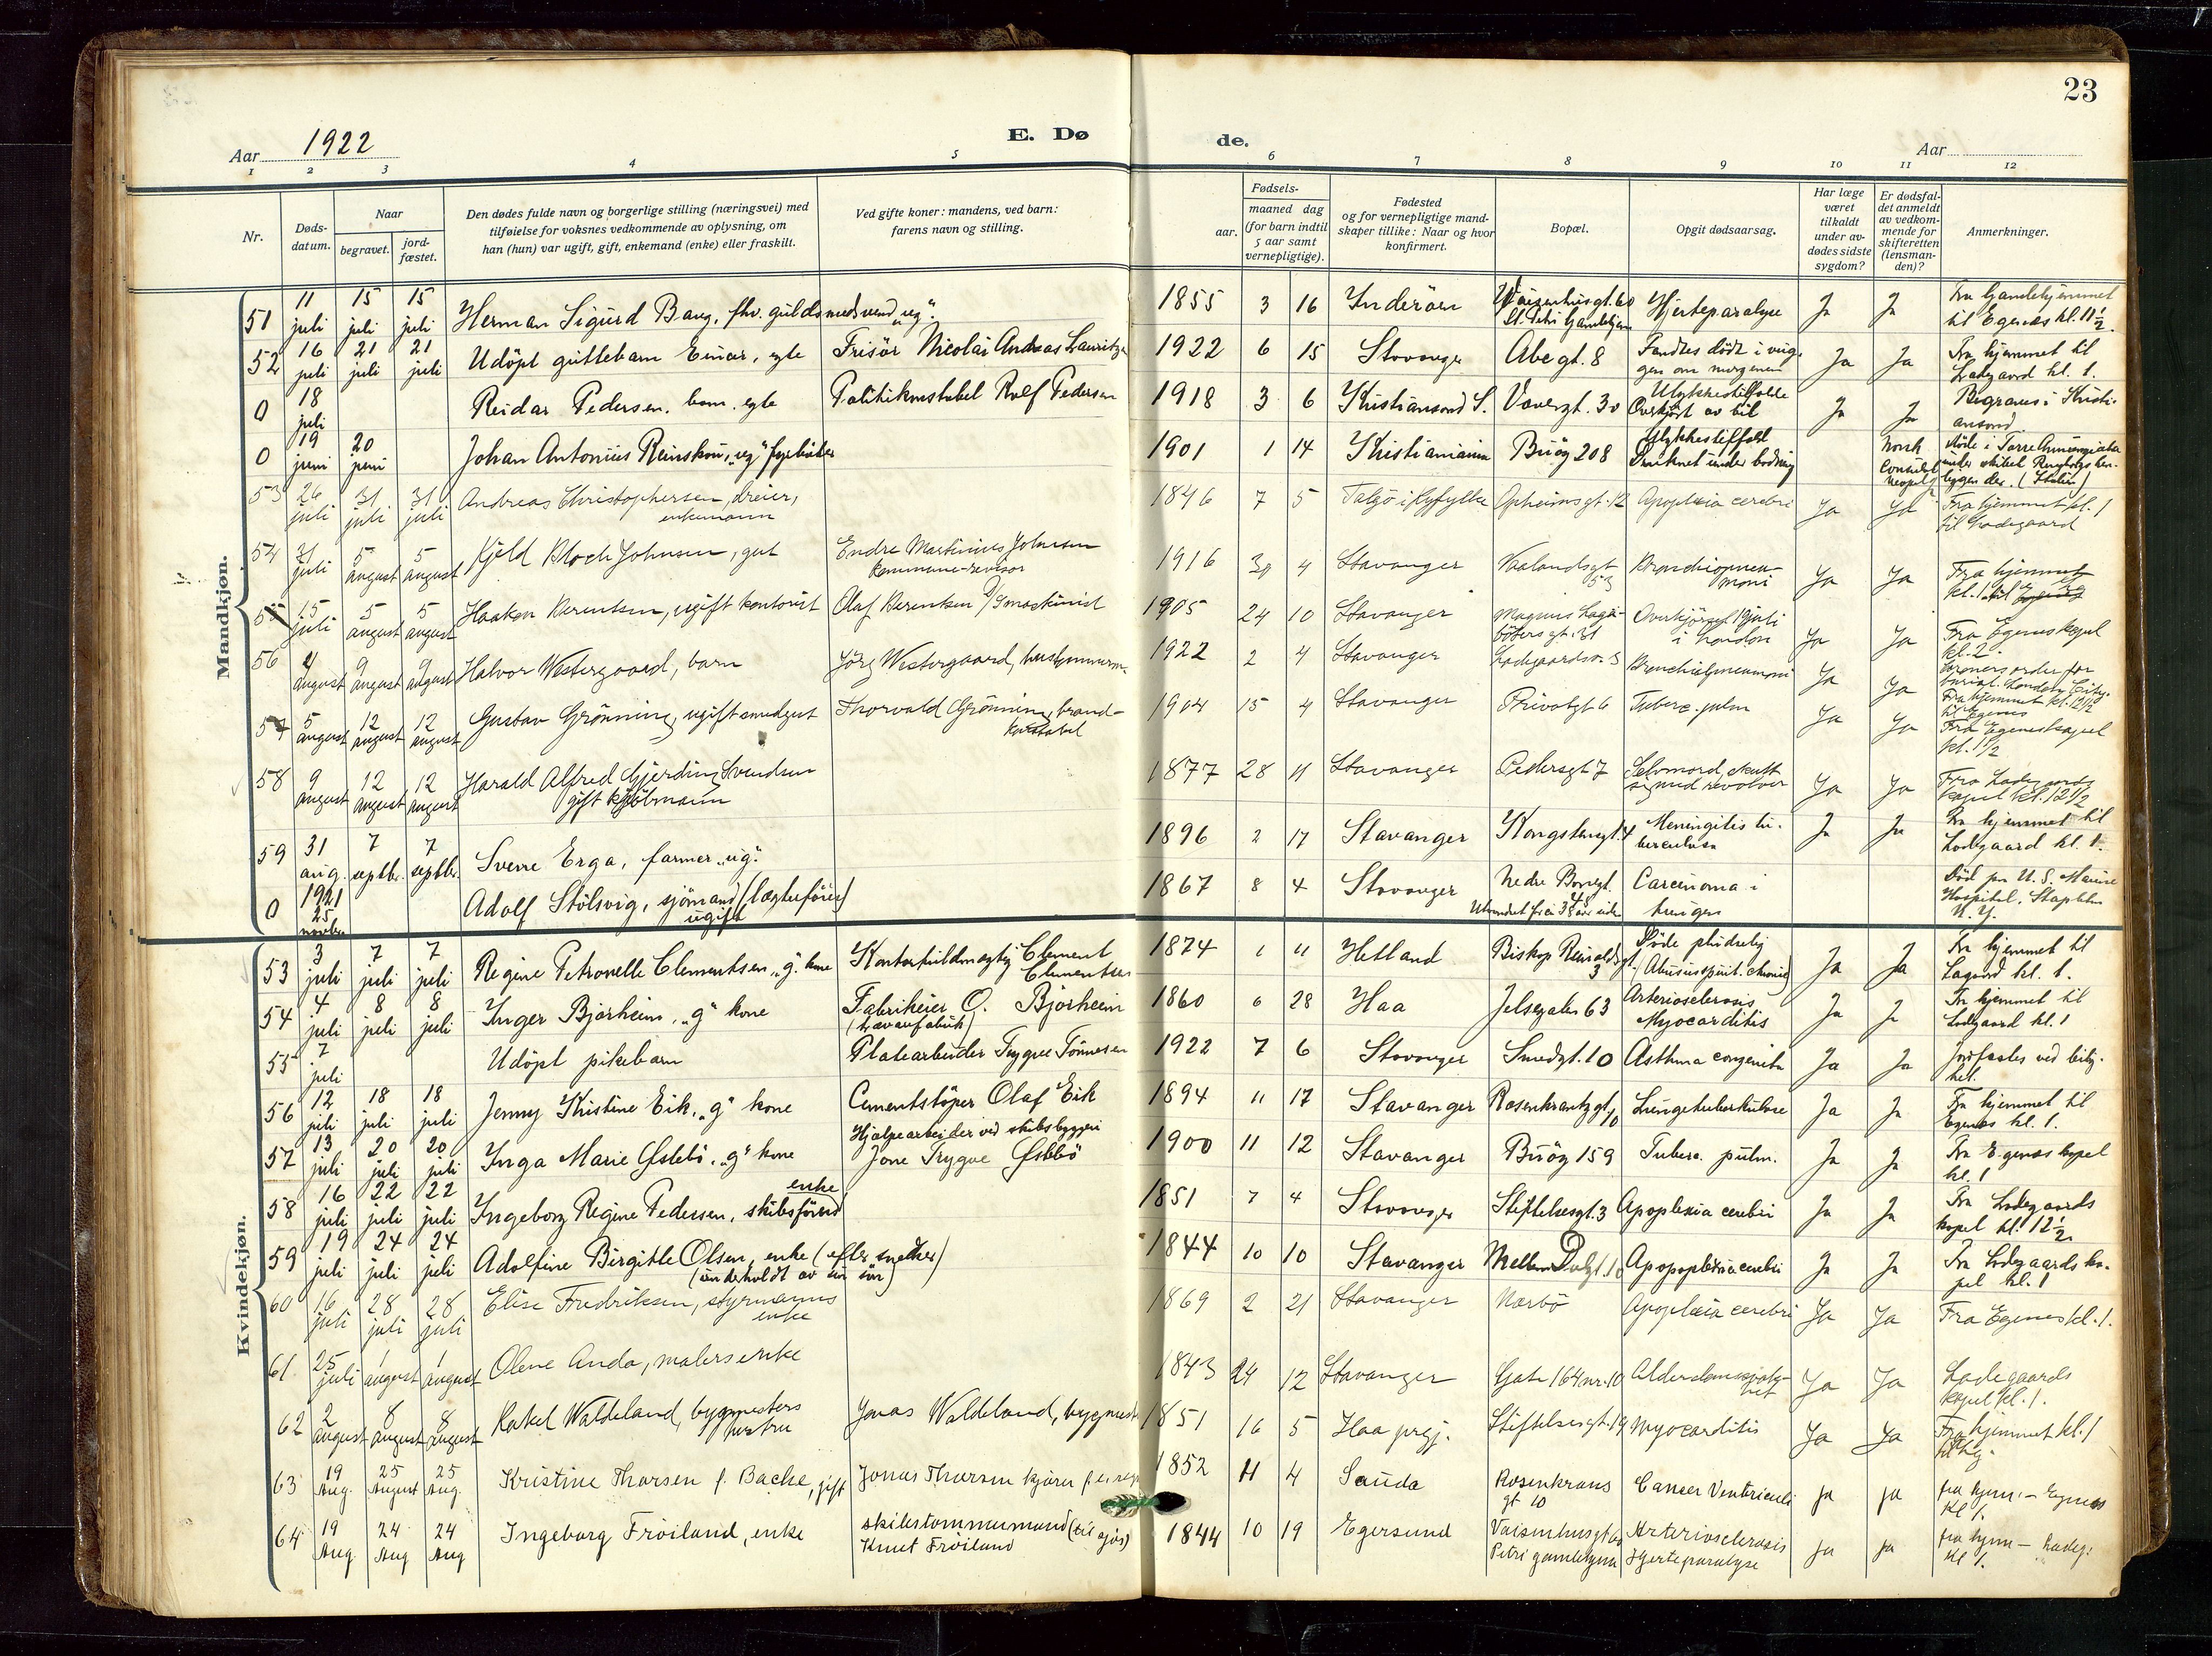 23
Aar 1922
E. Dø
de.
Aar
1 2 3 4 5 6 7 8 9 10 11 12
Nr.
Døds-
datum.
Naar
begravet.
jord-
fæstet.
Den dødes fulde navn og borgerlige stilling (næringsvei) med
tilføielse for voksnes vedkommende av oplysning, om
han (hun) var ugift, gift, enkemand (enke) eller fraskilt.
Ved gifte koner: mandens, ved barn:
farens navn og stilling.
Fødsels-
aar.
maaned dag
(for barn indtil
5 aar samt
vernepligtige).
Fødested
og for vernepligtige mand-
skaper tillike: Naar og hvor
konfirmert.
Bopæl.
Opgit dødsaarsag.
Har læge
været
tilkaldt
under av-
dødes sidste
sygdom?
Er dødsfal-
det anmeldt
av vedkom-
mende for
skifteretten
(lensman-
den)?
Anmerkninger.
Mandkjøn.
51 11 juli 15 juli 15 juli Herman Sigurd Bang, fhv. guldsmedsvend "ug". 1855 3 16 Inderöen Vaisenhusgt. 60 St. Petri Gamlehjem Hjerteparalyse Ja Ja Fra Gamlehjemmet til Egenæs kl. 11 1/2.
52 16 juli 21 juli 21 juli Udöpt guttebarn Einar, egte Frisör Nicolai Andreas Lauritzen 1922 6 15 Stavanger Abegt. 8 Fandtes död i vug- gen om morgenen Ja Ja Fra hjemmet til Ladegaard kl. 1.
0 18 juli Reidar Pedersen, barn, egte Politikonstabel Rolf Pedersen 1918 3 6 Kristiansand S. Vævergt. 30 Ulykkestilfælde Overkjört av bil Ja Ja Begraves i Kristi- ansand
0 19 juni 20 juni Johan Antonius Reinskou, "ug" fyrböter 1901 1 14 Kristiania Buöy 208 Ulykkestilfælde Druknet under badning Norsk Consulat Neapel Döde i Torre Annunziata under skibet Ringborgs hen- liggen der. (Italien)
53 26 juli 31 juli 31 juli Andreas Christophersen, dreier, enkemann 1846 7 5 Talgö i Ryfylke Opheimsgt. 12 Apoplexia cerebri Ja Ja Fra hjemmet kl. 1 til Ladegaard
54 31 juli 5 august 5 august Kjeld Bloch Johnsen, gut Endre Martinius Johnsen kommune-revisor 1916 30 4 Stavanger Vaalandsgt 53 Bronchiopneu- moni Ja Ja Fra hjemmet kl. 1 til Egenes
55 15 juli 5 august 5 august Haakon Berentsen, ugift kontorist Olaf Berentsen D/S maskinist 1905 24 10 Stavanger Magnus Laga- bötersgt. 31 Overkjöret 15 juli i London Ja Ja Fra Egenes kapel kl. 2. Coroners order for burial. London City.
56 4 august 9 august 9 august Halvor Westergaard, barn Jörg Westergaard, 1922 2 4 Stavanger Ladegaardsv. 5 Bronchialpneumoni Ja Ja Fra hjemmet kl. 12 1/2 til Egenes
57 5 august 12 august 12 august Gustav Grönning, ugift smedgut Thorvald Grönning, brand- konstabel 1904 15 4 Stavanger Privatgt 6 Tuberc. pulm Ja Ja Fra Egenes kapel kl. 1 1/2
58 9 august 12 august 12 august Harald Alfred Gjerding Svendsen gift kjöbmann 1877 28 11 Stavanger Pedersgt 7 Selvmord, skutt sig med revolver Ja Ja Fra Ladegaards kapel kl. 12 1/2
59 31 aug. 7 septbr. 7 septbr. Sverre Erga, farmer "ug". 1896 2 17 Stavanger Kongstensgt. 4 Meningitis tu- berculosa Ja Ja Fra hjemmet til Ladegaard kl. 1.
0 1921 25 novbr. Adolf Stölsvig, sjömand (lægterförer) ugift 1867 8 4 Stavanger Nedre Carcinoma i tungen Död paa U. S. Marine Hospital, Stapleton N. Y.
Kvindekjøn.
53 3 juli 7 juli 7 juli Regine Petronelle Clementsen, "g". kone Kontorfuldmægtig Clement Clementsen 1874 1 11 Hetland Biskop Reinaldsgt. 3 Döde pludselig (Abusus spirit. chronic) Ja Ja Fra hjemmet til Lagaard kl. 1.
54 4 juli 8 juli 8 juli Inger Bjorheim, "g" kone Fabrikeier O. Bjorheim 1860 6 28 Haa Jelsegaten 63 Arteriosclerosis Myocarditis Ja Ja Fra hjemmet til Ladegaard kl. 1
55 7 juli Udöpt pikebarn Platearbeider Trygve Tönnesen 1922 7 6 Stavanger Smedgt. 10 Asthma congenita Ja Ja Jordfæstes ved leilig- het.
56 12 juli 18 juli 18 juli Jenny Kristine Eik, "g" kone Cementstöper Olaf Eik 1894 11 17 Stavanger Rosenkrantzgt. 10 Lungetuberkulose Ja Ja Fra hjemmet til Egenæs kl. 1.
57 13 juli 20 juli 20 juli Inga Marie Östebö, "g" kone Hjælpearbeider ved skibsbyggeri Jone Trygve Östebö 1900 11 12 Stavanger Buöy 159 Tuberc. pulm. Ja Ja Fra Egenæs kapel kl. 1
58 16 juli 22 juli 22 juli Ingeborg Regine Pedersen, skibsförer enke 1851 7 4 Stavanger Stiftelsesgt. 3 Apoplexia cerebri Ja Ja Fra Ladegaards kapel kl. 12 1/2.
59 19 juli 24 juli 24 juli Adolfine Birgitte Olsen, enke (efter snedker) (underholdt av sin sön) 1844 10 10 Stavanger Mellem Dalgt. 10 Apopoplexia cerebri Ja Ja Fra Ladegaards ka- pel kl. 1
60 16 juli 28 juli 28 juli Elise Fredriksen, styrmanns enke 1869 2 21 Stavanger Nærbö Apoplexia cerebri Ja Ja Fra Egenes kl. 1.
61. 25 juli 1 august 1 august Olene Anda, malers enke 1843 24 12 Stavanger Gate 164 nr. 10 Alderdomssvak- het Ja Ja Ladegaards kapel kl. 1.
62 2 august 8 august 8 august Rakel Waldeland, bygmesters hustru Jonas Waldeland, bygmester 1851 16 5 Haa prgj. Stiftelsesgt. 19 Myocarditis Ja Ja Fra hjemmet kl. 1
63 19 Aug. 25 August 25 Aug. Kristine Thorsen f. Bache, gift Jonas Thorsen 1852 11 4 Sauda Rosenkrans gt 10 Cancer Ventriculi ja ja fra hjem. – Egenes Kl 1.
64 19 Aug. 24 Aug 24 Aug Ingeborg Fröiland, enke skibstømmermand (til sjös) Knut Fröiland 1844 10 19 Egersund Vaisenhusgt 60 Petri gamlehjem Arteriosclerosis Hjerteparalyse ja ja fra hjem – Ladeg. Kl 1.